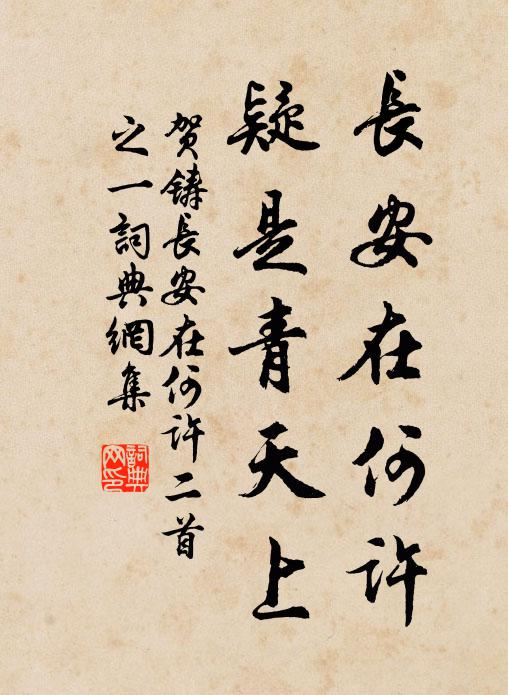 長安在何許
疑是青天上
賀鑄長安在何許二首
之一詞典網集
詞典網印